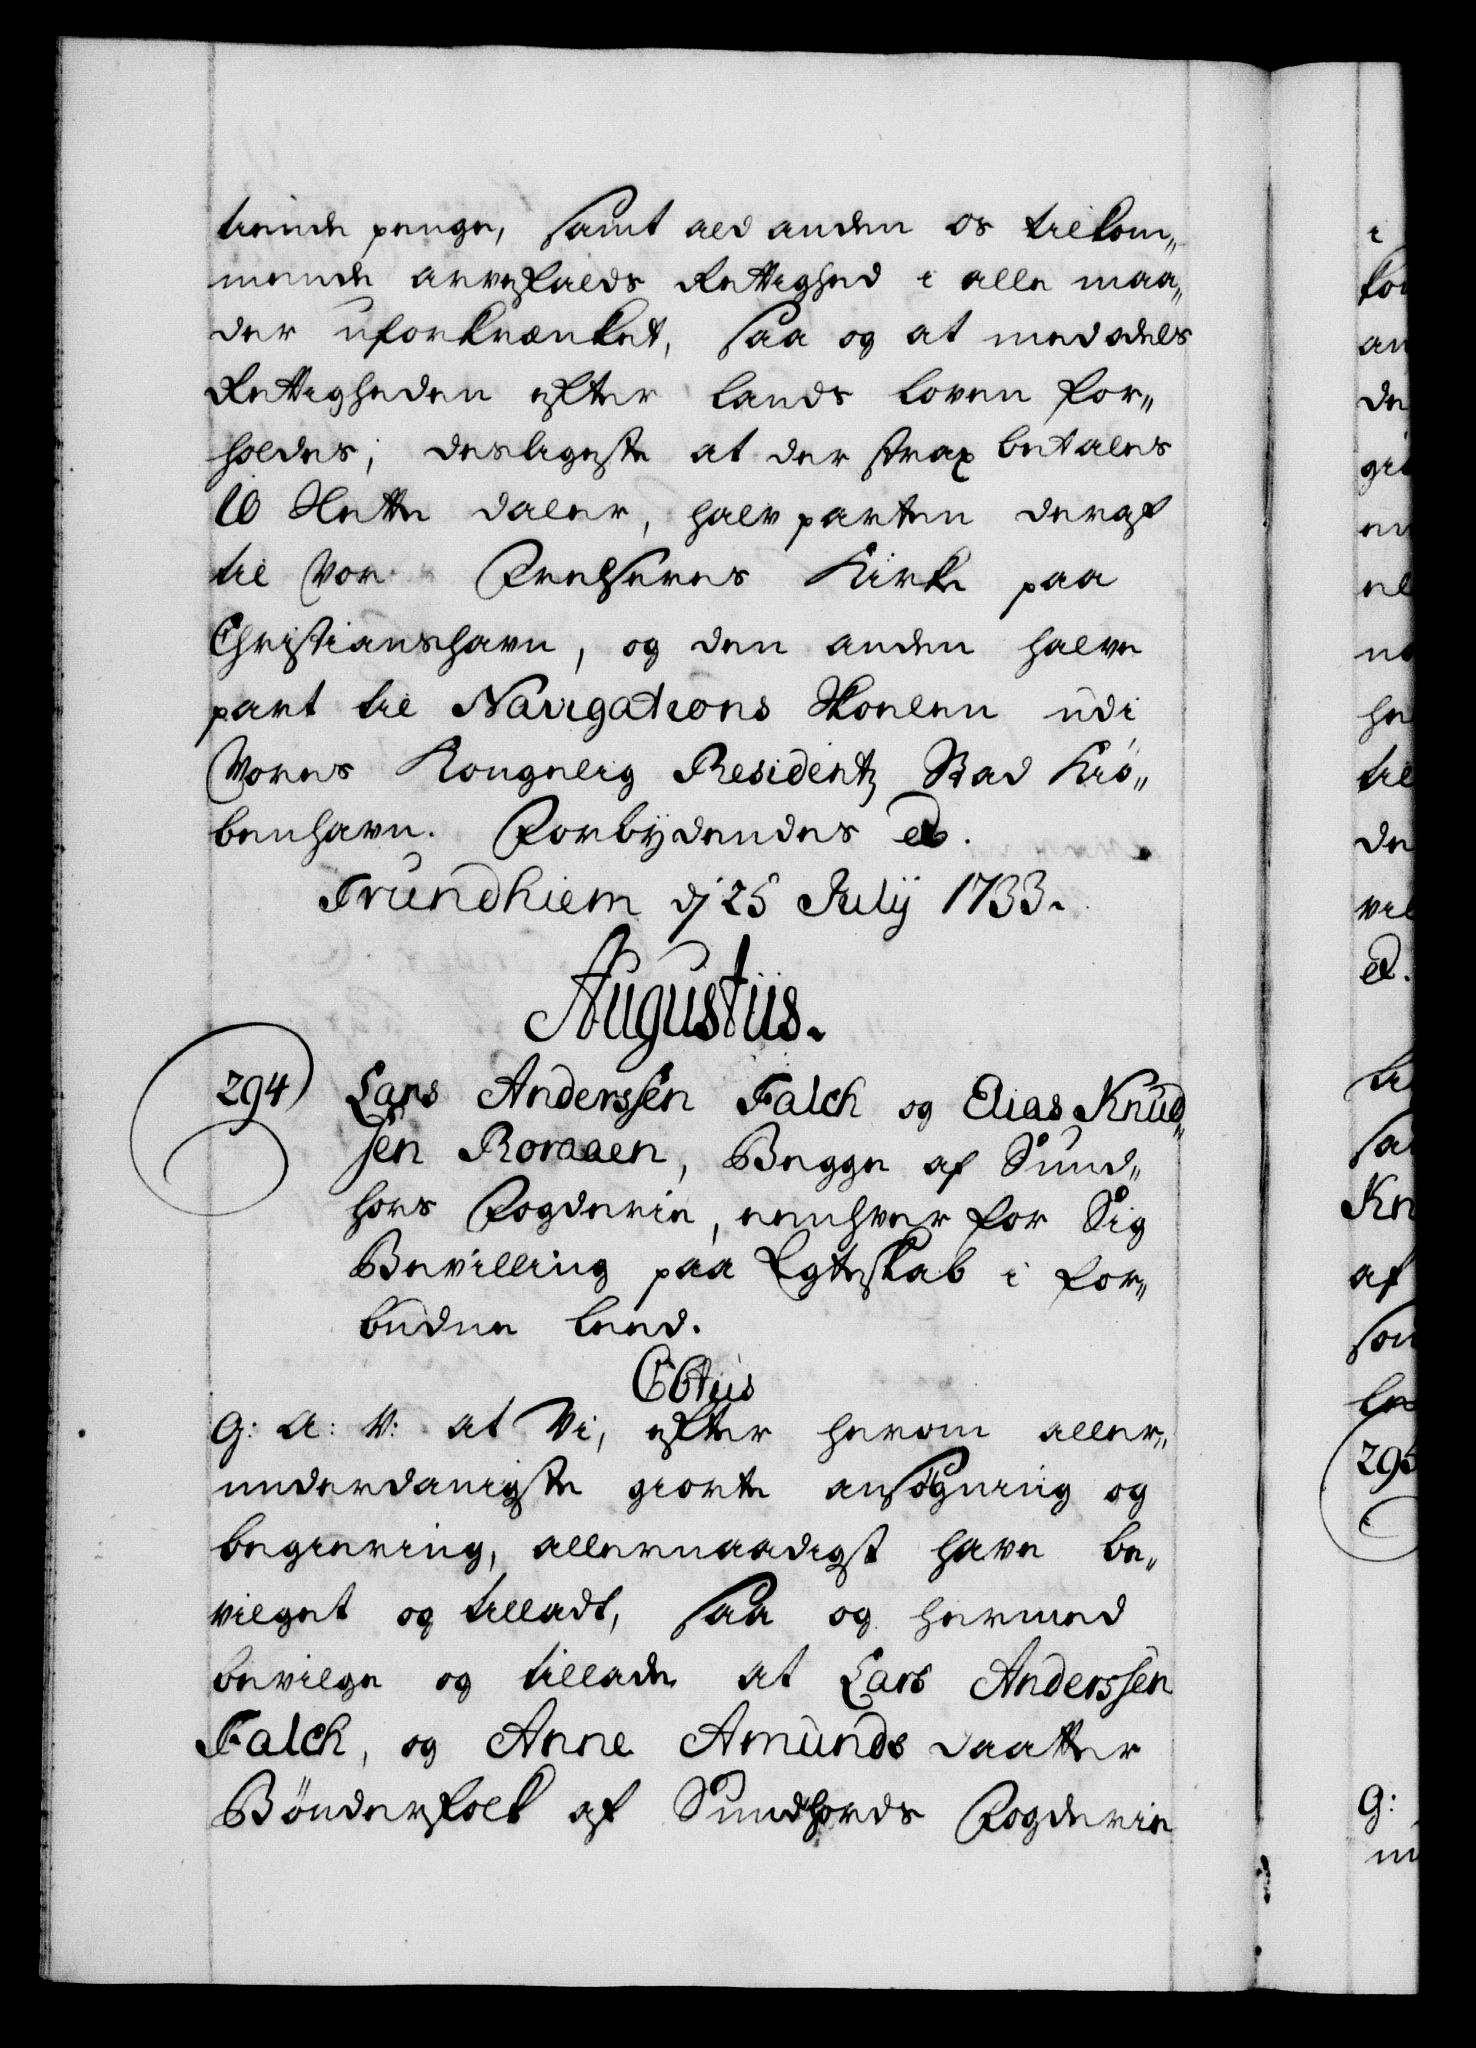 tiende penge, samt ald anden os tilkom„
mende arvefalds Rettighed i alle maa„
der uforkrænket, saa og at med odels
Rettigheden efter Lands Loven for„
holdes; desligeste at der strax betales
10 Slette daler, halv parten deraf
til Vor Frelseres Kirke paa
Christianshavn, og den anden halve
part til Navigations Skoelen udi
Vores Kongelig Residentz Stad Kiö„
benhavn. Forbydendes etc.
Trundhiem dj 25 Julij 1733.
Augustus.
294) Lars Anderssen Falch og Elias Knud„
sen Roraaen, Begge af Sund„
hors Fogderie, eenhver for Sig
Bevilling paa Egteskab i for„
buden Leed.
C6tus
G: A: V: at Vi, efter herom aller„
underdanigste giorte ansøgning og
begiering, allernaadigst have be„
vilget og tilladt, saa og hermed
bevilge og tillade at Lars Anderssen
Falch, og Anne Amunds daatter
Bönderfolk af Sundhords Fogderie